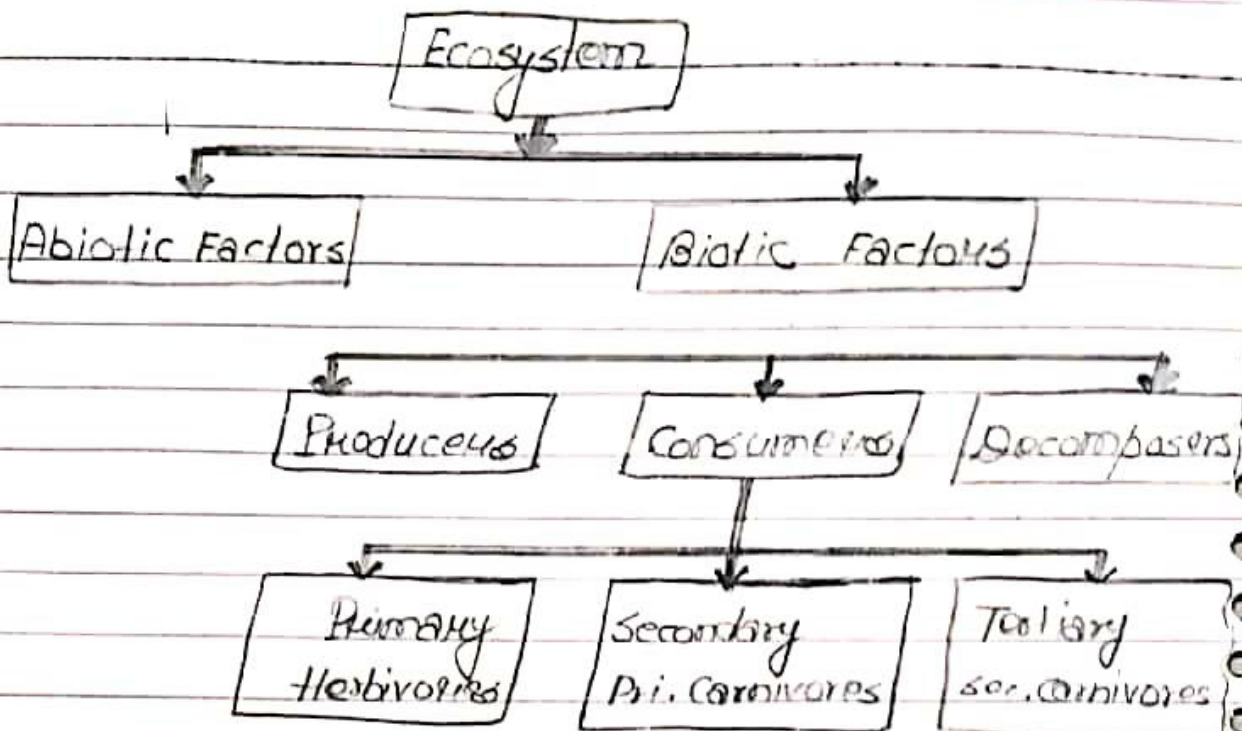 Ecosystem
Abiotic Factors
Biotic Factors
Producers
Consumers
Decomposers
Primary
Herbivories
Secondary
Pri. Carnivores
Tertiary
sec. carnivores